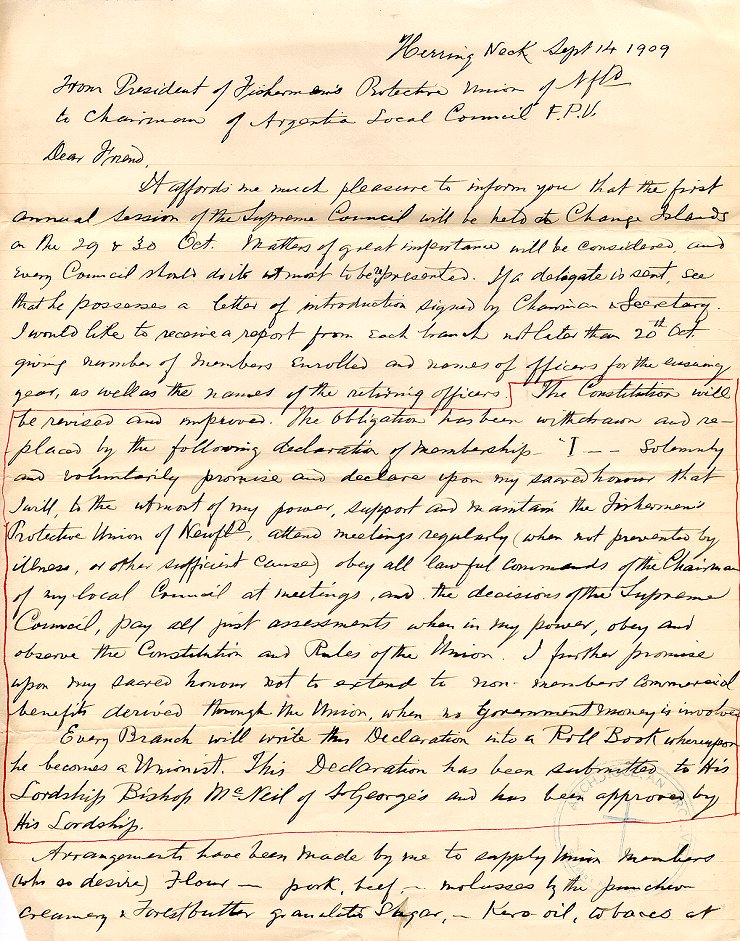 Herring Neck Sept 14 1909
From President of Fishermen's Protective Union of Nfld
to Chairman of Argentia Local Council F.P.U.
Dear Friend,
It affords me much pleasure to inform you that the first
annual session of the Supreme Council will be held at Change Islands
on the 29 & 30 Oct. Matters of great importance will be considered, and
every Council should do its utmost to be represented. If a delegate is sent, see
that he possesses a letter of introduction signed by Chairman & Secretary.
I would like to receive a report from each branch not later than 20th Oct.
giving number of members enrolled and names of officers for the ensuing
year, as well as the names of the retiring officers. The Constitution will
be revised and improved. The Obligation has been withdrawn and re-
placed by the following declaration of membership - "I - - Solemnly
and voluntarily promise and declare upon my sacred honour that
I will, to the utmost of my power, support and maintain the Fishermen's
Protective Union of Newfld, attend meetings regularly (when not prevented by
illness, or other sufficient cause) obey all lawful commands of the Chairman
of my local Council at meetings, and the decisions of the Supreme
Council, pay all just assessments when in my power, obey and
observe the Constitution and Rules of the Union. I further promise
upon my sacred honour not to extend to non-members commercial
benefits derived through the Union, when no Government money is involved
Every Branch will write this Declaration into a Roll Book whereupon
he becomes a Unionist. This Declaration has been submitted to His
Lordship Bishop McNeil of St George's and has been approved by
His Lordship.
Arrangements have been made by me to supply Union members
(who so desire) Flour - pork, beef, - molasses by the puncheon
creamery & Forestbutter granulated Sugar, - Kero oil, tobacco at